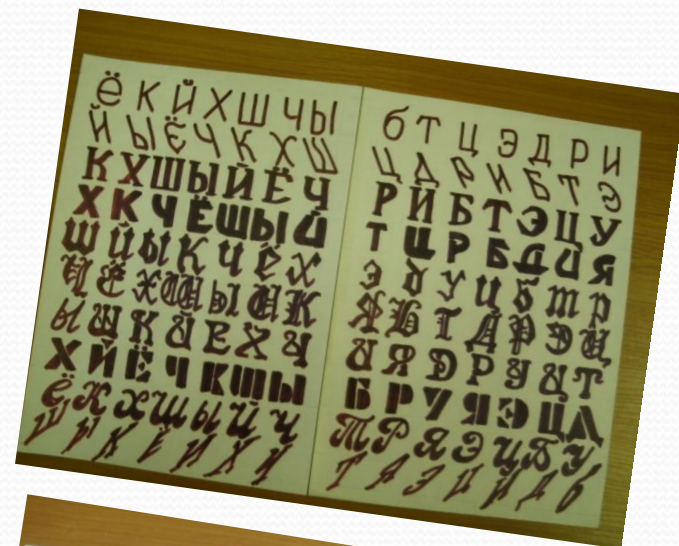 Ё К Й Х Ш Ч Ы
Й Ы Ё Ч К Х Ш
К Х Ш Ы Й Ё Ч
Х К Ч Ё Ш Ы Й
Ш Й Ы К Ч Ё Х
Й Ё Х Ш Ы Ч К
Ы Ш К Й Ё Х Ч
Х Й Ё Ч К Ш Ы
Ё К Х Ш Ы Й Ч
Ш Ы К Ё Й Х Ч
б Т Ц Э Д Р И
Ц Д Р И Б Т Э
Р И Б Т Э Ц У
Т Ц Р Б Д И Я
Э У Ц б т р
Я Б Т Д Р Э Ц
И Я Э Р У Д Т
Б Р У Я Э Ц Д
Т Р Я Э Ц Б У
Т Д Э Ц И Д б